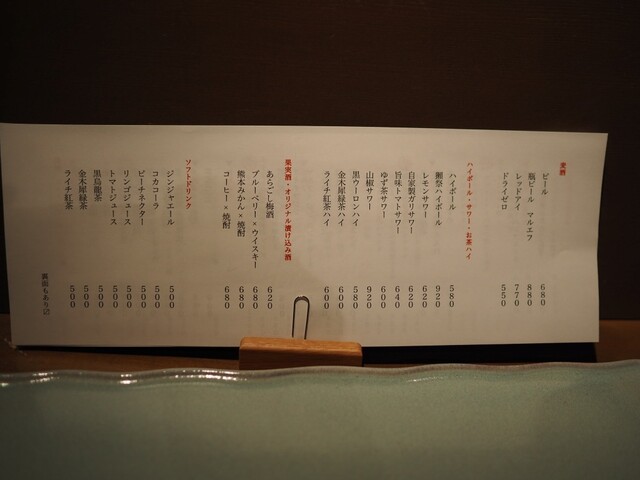 麦酒
ビール 680
瓶ビール マルエフ 880
レッドアイ 770
ドライゼロ 550
ハイボール・サワー・お茶ハイ
ハイボール 580
獺祭ハイボール 920
レモンサワー 620
自家製ガリサワー 620
旨味トマトサワー 640
ゆず茶サワー 600
山椒サワー 920
黒ウーロンハイ 580
金木犀緑茶ハイ 600
ライチ紅茶ハイ 600
果実酒・オリジナル漬け込み酒
あらごし梅酒 620
ブルーベリー×ウイスキー 680
熊本みかん×焼酎 680
コーヒー×焼酎 680
ソフトドリンク
ジンジャエール 500
コカコーラ 500
ピーチネクター 500
リンゴジュース 500
トマトジュース 500
黒烏龍茶 500
金木犀緑茶 500
ライチ紅茶 500
裏面もあり〼